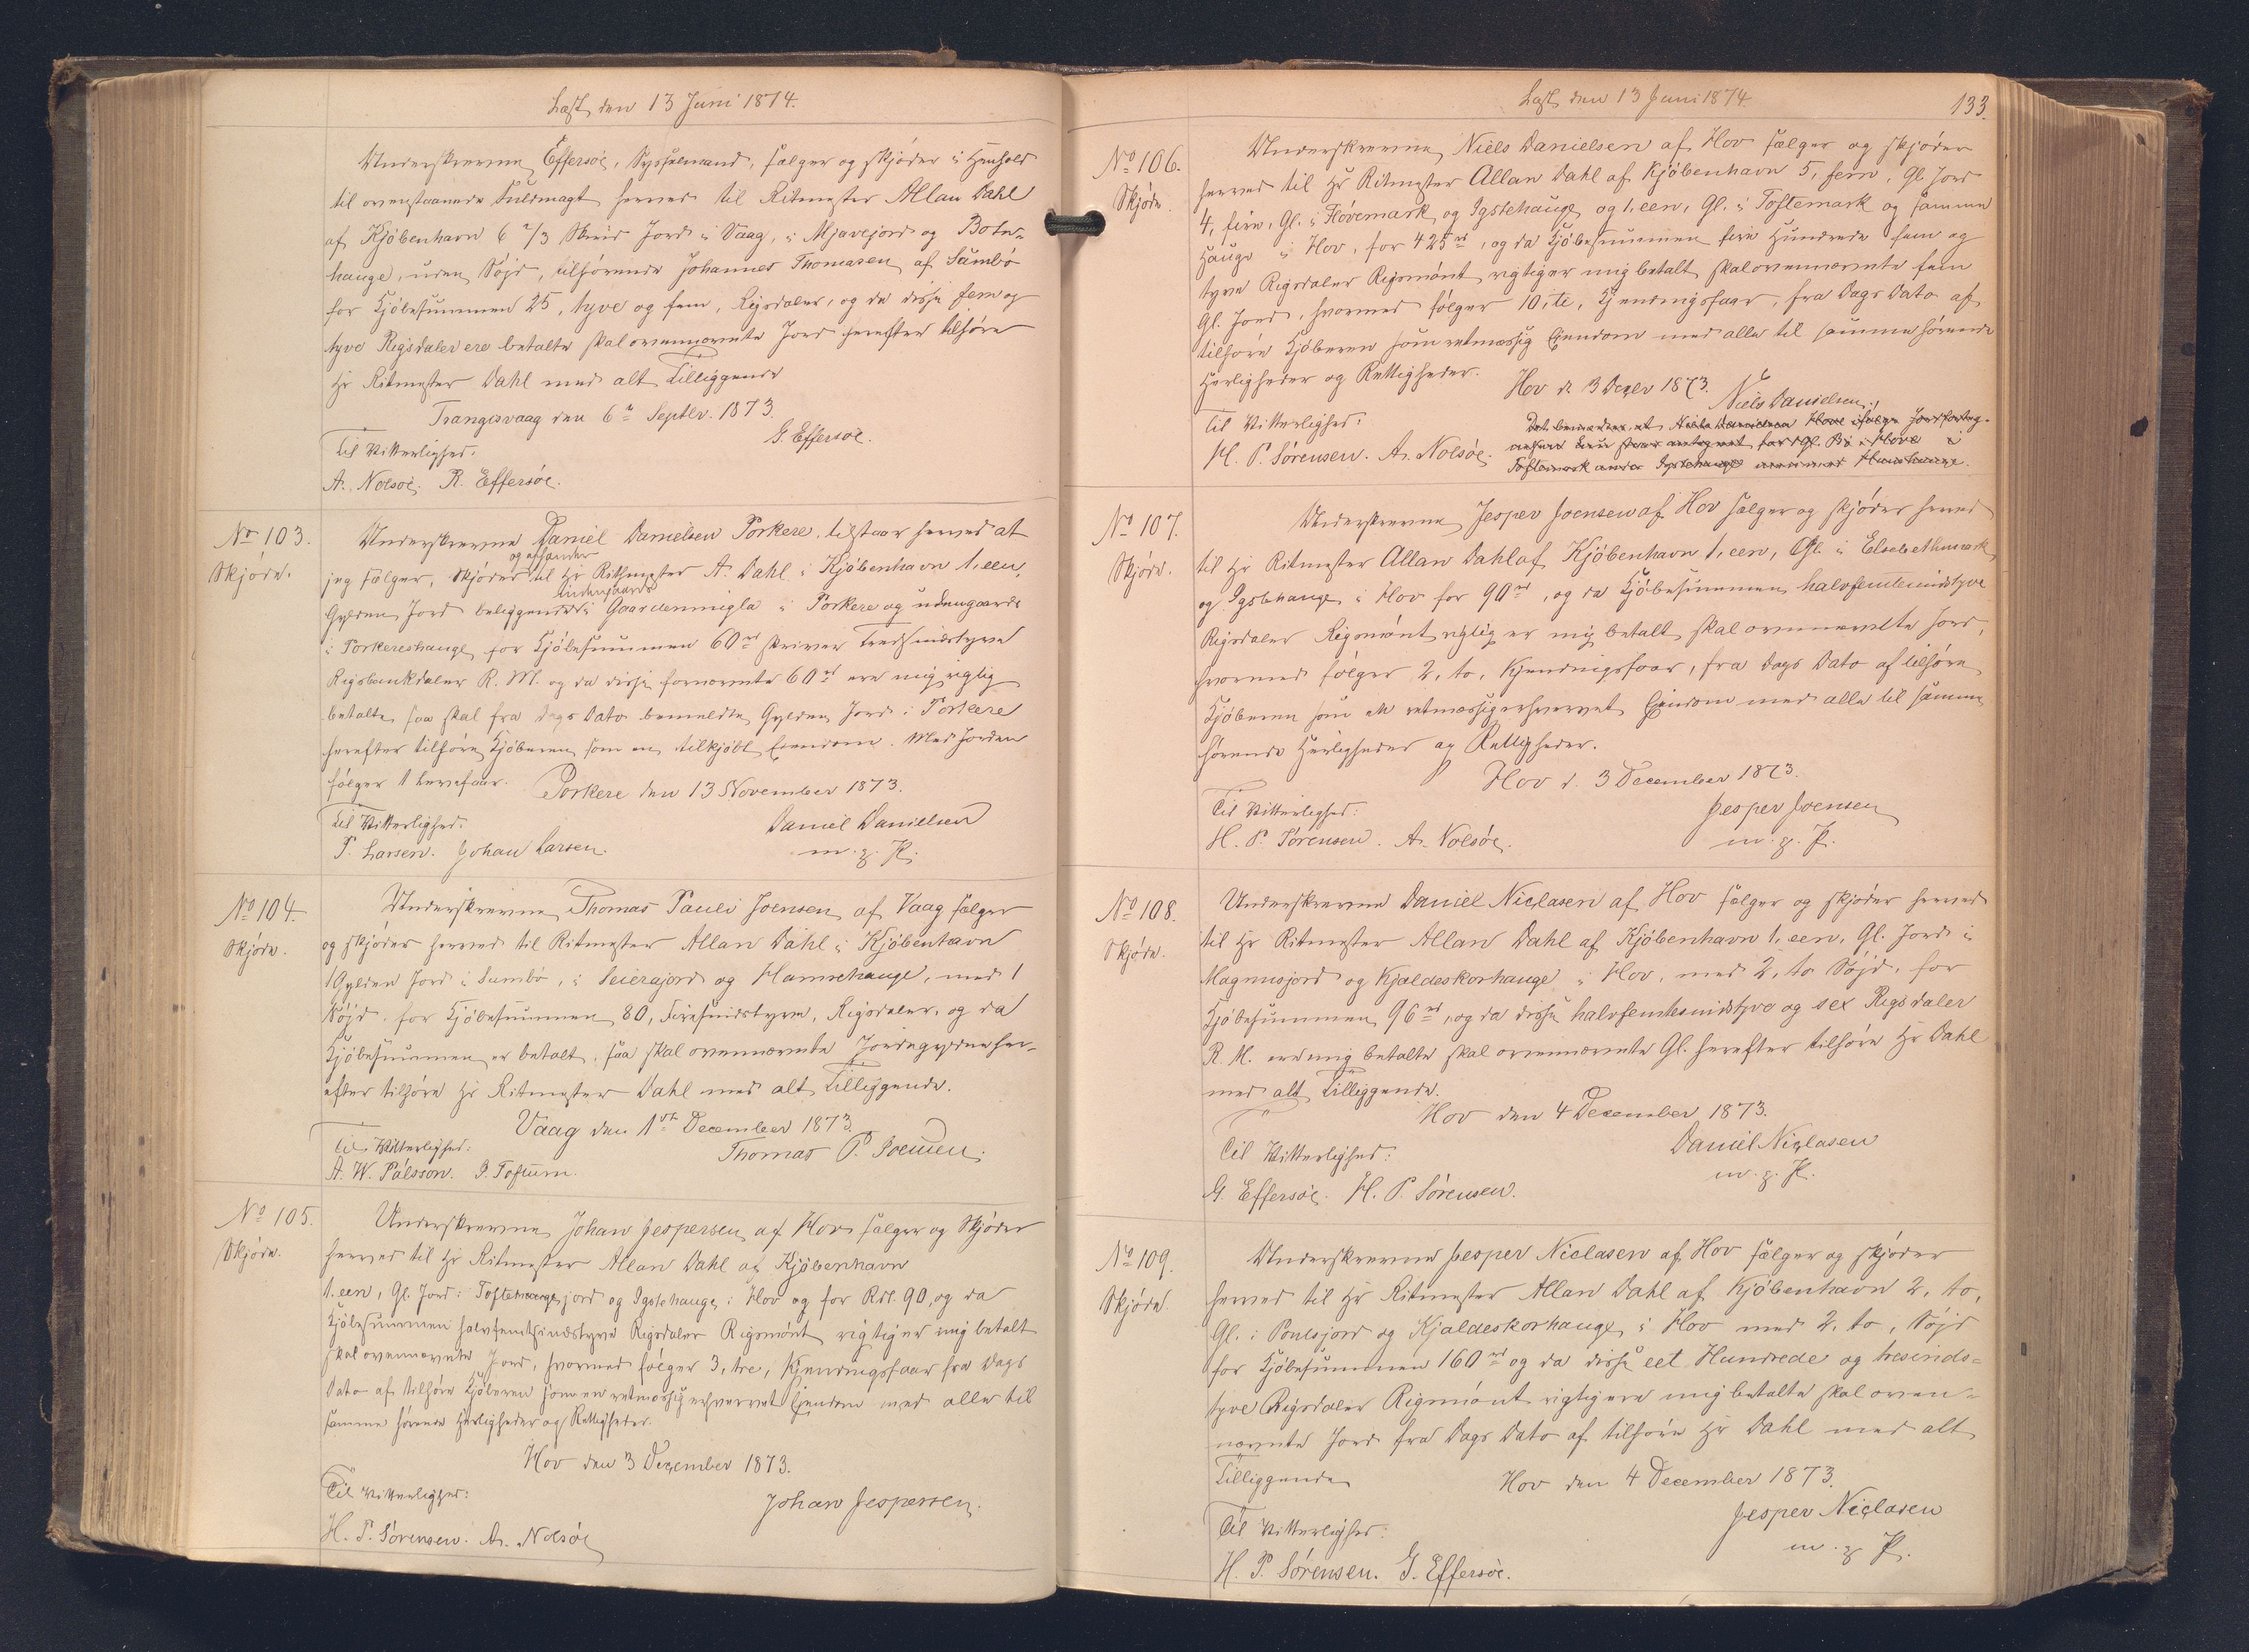 Læst den 13 Juni 1874.
Underskrevne Effersøe, Sysselmand, sælger og skjøder i Henhold
til ovenstaaende Fuldmagt herved til Ritmester Allan Dahl
af Kjöbenhavn 6 2/3 Skind Jord i Vaag, i Mjavejord og Botn-
hauge, uden Söjd, tilhörende Johannes Thomasen af Sumbø
for Kjöbesummen 25, tyve og fem, Rigsdaler, og da disse fem og
tyve Rigsdaler ere betalte skal ovennævnte Jord herefter tilhöre
Hr Ritmester Dahl med alt Tilliggende
Trangisvaag den 6te Septbr. 1873.
G. Effersøe.
Til Vitterlighed:
A. Nolsøe. R. Effersøe.
No 103.
Skjöde.
Underskrevne Daniel Danielsen Porkere, tilstaar herved at
og afhænder
jeg sælger, skjöder til Hr Rithmester A. Dahl i Kjöbenhavn 1, een,
indengaards
Gylden Jord beliggende i Gaardenmigla i Porkere og udengaards
i Porkereshauge for Kjöbesummen 60 rd skriver Tredsindstyve
Rigsbankdaler R. M. og da disse fornævnte 60 rd ere mig rigtig
betalte, saa skal fra dags Dato bemeldte Gylden Jord i Porkere
herefter tilhöre Kjöberen som en tilkjöbt Eiendom. Med Jorden
fölger 1 havefaar.
Porkere den 13 November 1873.
Til Vitterlighed:
Daniel Danielsen
P. Larsen. Johan Larsen.
m. p. P.
No 104.
Skjöde.
Underskrevne Thomas Pauli Joensen af Vaag sælger
og skjöder herved til Ritmester Allan Dahl i Kjöbenhavn
1 Gylden Jord i Sumbø, i Leierajord og Hamrehauge, med 1
Söjd for Kjöbesummen 80, Firesindstyve, Rigsdaler, og da
Kjöbesummen er betalt, saa skal ovennævnte Jordegylden her-
efter tilhöre Hr Ritmester Dahl med alt Tilliggende.
Vaag den 1ste December 1873.
Til Vitterlighed:
Thomas P. Joensen.
A. W. Pálsson. P. Toftum.
No 105.
Skjöde.
Underskrevne Johan Jespersen af Hov sælger og Skjöder
herved til Hr Ritmester Allan Dahl af Kjöbenhavn
1, een, Gl. Jord i Toftehaugejord og Igstehauge i Hov og for Rdl. 90, og da
Kjöbesummen halvfemtsindstyve Rigsdaler Rigsmönt rigtig er mig betalt
skal ovennævnte Jord, hvormed fölger 3, tre, Kjendingsfaar fra Dags
Dato af tilhöre Kjöberen som en retmæssig erhvervet Ejendom med alle til
samme hörende Herligheder og Rettigheder.
Hov den 3 December 1873.
Til Vitterlighed:
Johan Jespersen.
H. P. Sörensen. A. Nolsöe
Læst den 13 Juni 1874.
133.
No 106.
Skjöde.
Underskrevne Niels Danielsen af Hov sælger og skjöder
herved til Hr Ritmester Allan Dahl af Kjöbenhavn 5, fem, Gl. Jord
4, fire, Gl. i Hovemark og Igstehauge og 1, een, Gl. i Toftemark og samme
Hauge i Hov, for 425 rd, og da Kjöbesummen fire Hundrede fem og
tyve Rigsdaler Rigsmönt rigtig er mig betalt skal ovennævnte fem
Gl. Jord, hvormed fölger 10, ti, Kjendingsfaar, fra Dags Dato af
tilhöre Kjöberen som retmæssig Ejendom med alle til samme hörende
Herligheder og Rettigheder.
Hov d. 3 Decbr 1873.
Niels Danielsen.
Til Vitterlighed:
Det bemærkes at Niels Danielsen Hove ifølge Jordfortegnelsen
H. P. Sörensen. A. Nolsöe.
Toftemark Igstehauge Hamrhauge.
No 107.
Skjöde.
Underskrevne Jesper Joensen af Hov sælger og skjöder herved
til Hr Ritmester Allan Dahl af Kjöbenhavn 1, een, Gl. i Elsebethmark
og Igstehauge i Hov for 90 rd, og da Kjöbesummen halvfemtesindstyve
Rigsdaler Rigsmönt rigtig er mig betalt skal ovennævnte Jord,
hvormed fölger 2, to, Kjendingsfaar, fra Dags Dato af tilhöre
Kjöberen som en retmæssig erhvervet Ejendom med alle til samme
hörende Herligheder og Rettigheder.
Hov d. 3 December 1873.
Til Vitterlighed:
Jesper Joensen
H. P. Sörensen. A. Nolsöe.
m. p. P.
No 108.
Skjöde.
Underskrevne Daniel Niclasen af Hov sælger og skjöder herved
til Hr Ritmester Allan Dahl af Kjöbenhavn 1, een, Gl. Jord i
Magnusjord og Kjældeskorhauge i Hov, med 2, to Söjd, for
Kjöbesummen 96 rd, og da disse halvfemtesindstyve og sex Rigsdaler
R. M. ere mig betalte skal ovennævnte Gl. herefter tilhöre Hr Dahl
med alt Tilliggende.
Hov den 4 December 1873.
Til Vitterlighed:
Daniel Niclasen
m. p. P.
G. Effersöe. H. P. Sörensen.
No 109.
Skjöde.
Underskrevne Jesper Niclasen af Hov sælger og skjöder
herved til Hr Ritmester Allan Dahl af Kjöbenhavn 2, to,
Gl. i Poulsjord og Kjældeskorhauge i Hov med 2, to, Söjd
for Kjöbesummen 160 rd og da disse eet Hundrede og tresinds-
tyve Rigsdaler Rigsmönt rigtig ere mig betalte skal oven-
nævnte Jord fra Dags Dato af tilhöre Hr Dahl med alt
Tilliggende
Hov den 4 December 1873.
Til Vitterlighed:
Jesper Niclasen
m. p. P.
H. P. Sörensen. G. Effersöe.